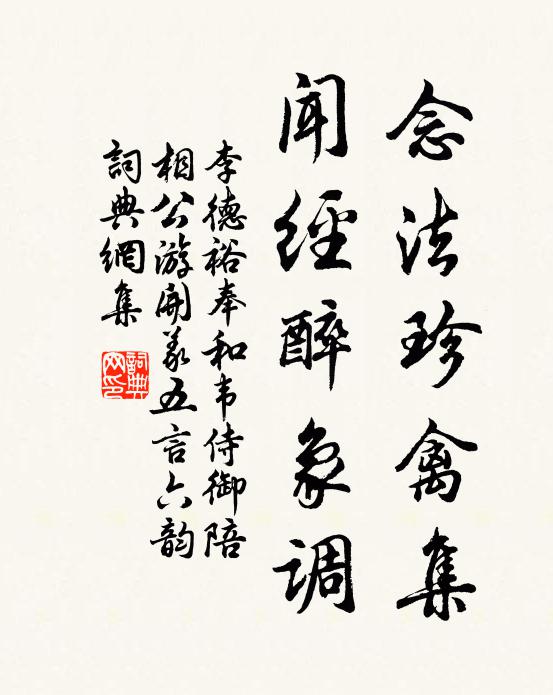 念法珍禽集
闻經醉象调
李德裕奉和韦侍御陪
相公游開义五言六韵
詞典網集
詞典網印